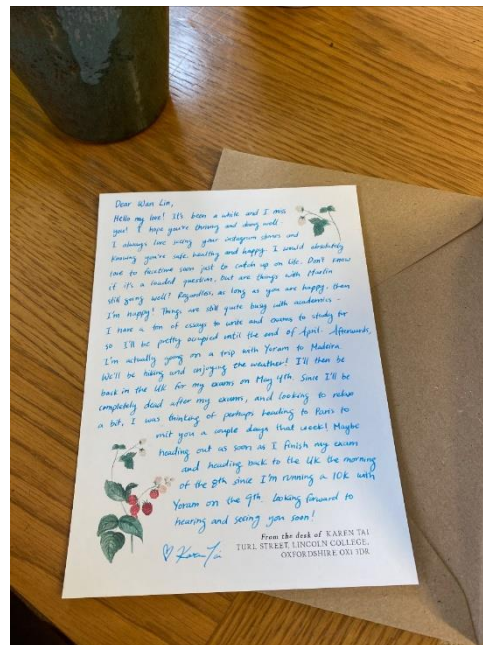 Dear Wan Lin,
Hello my love! It's been a while and I miss
you! I hope you're thriving and doing well.
I always love seeing your instagram stories and
knowing you're safe, healthy and happy. I would absolutely
love to facetime soon just to catch up on life. Don't know
if it's a loaded question, but are things with Martin
still going well? Regardless, as long as you are happy, then
I'm happy! Things are still quite busy with academics -
I have a ton of essays to write and exams to study for
so I'll be pretty occupied until the end of April. Afterwards,
I'm actually going on a trip with Yoram to Madeira.
We'll be hiking and enjoying the weather! I'll then be
back in the UK for my exams on May 4th. Since I'll be
completely dead after my exams, and looking to relax
a bit, I was thinking of perhaps heading to Paris to
visit you a couple days that week! Maybe
heading out as soon as I finish my exam
and heading back to the UK the morning
of the 8th since I'm running a 10K with
Yoram on the 9th. Looking forward to
hearing and seeing you soon!
From the desk of KAREN TAI
TURL STREET, LINCOLN COLLEGE,
OXFORDSHIRE OX1 3DR
♡ Karen Tai